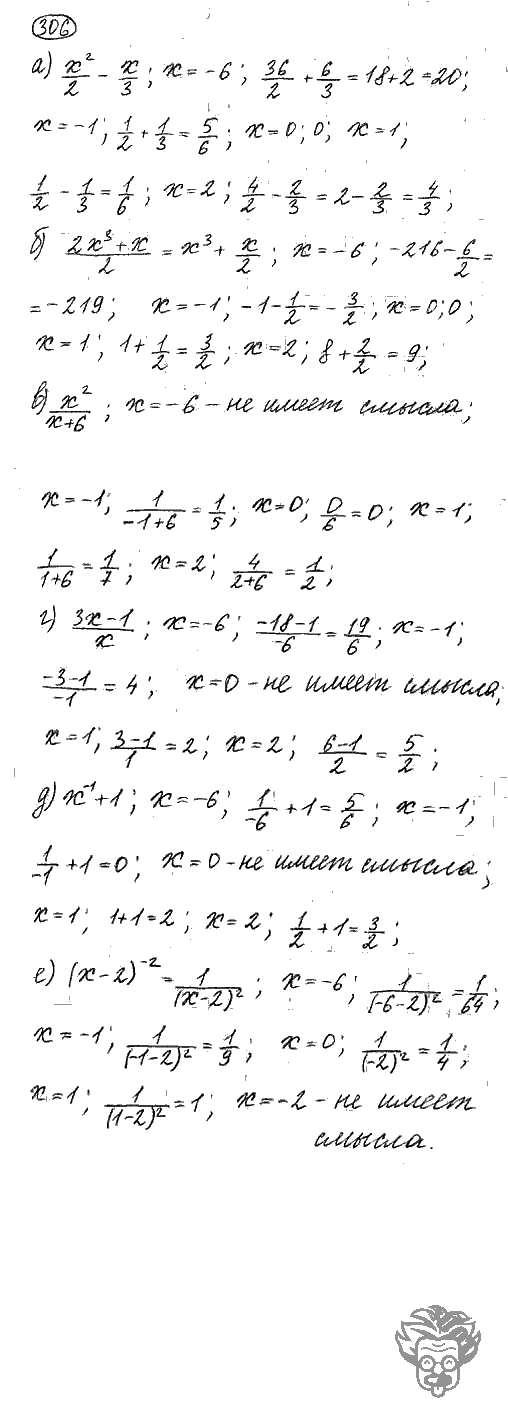 306
а) x²/2 - x/3; x=-6; 36/2 + 6/3 = 18+2=20;
x=-1; 1/2 + 1/3 = 5/6; x=0; 0; x=1;
1/2 - 1/3 = 1/6; x=2; 4/2 - 2/3 = 2 - 2/3 = 4/3;
б) (2x³+x)/2 = x³ + x/2; x=-6; -216 - 6/2 =
= -219; x=-1; -1 - 1/2 = - 3/2; x=0; 0;
x=1; 1 + 1/2 = 3/2; x=2; 8 + 2/2 = 9;
в) x²/(x+6); x=-6 - не имеет смысла;
x=-1; 1/(-1+6) = 1/5; x=0; 0/6 = 0; x=1;
1/(1+6) = 1/7; x=2; 4/(2+6) = 1/2;
г) (3x-1)/x; x=-6; (-18-1)/-6 = 19/6; x=-1;
(-3-1)/-1 = 4; x=0 - не имеет смысла;
x=1; (3-1)/1 = 2; x=2; (6-1)/2 = 5/2;
д) x⁻¹+1; x=-6; 1/-6 + 1 = 5/6; x=-1;
1/-1 + 1 = 0; x=0 - не имеет смысла;
x=1; 1+1=2; x=2; 1/2 + 1 = 3/2;
е) (x-2)⁻² = 1/(x-2)²; x=-6; 1/(-6-2)² = 1/64;
x=-1; 1/(-1-2)² = 1/9; x=0; 1/(-2)² = 1/4;
x=1; 1/(1-2)² = 1; x=-2 - не имеет
смысла.